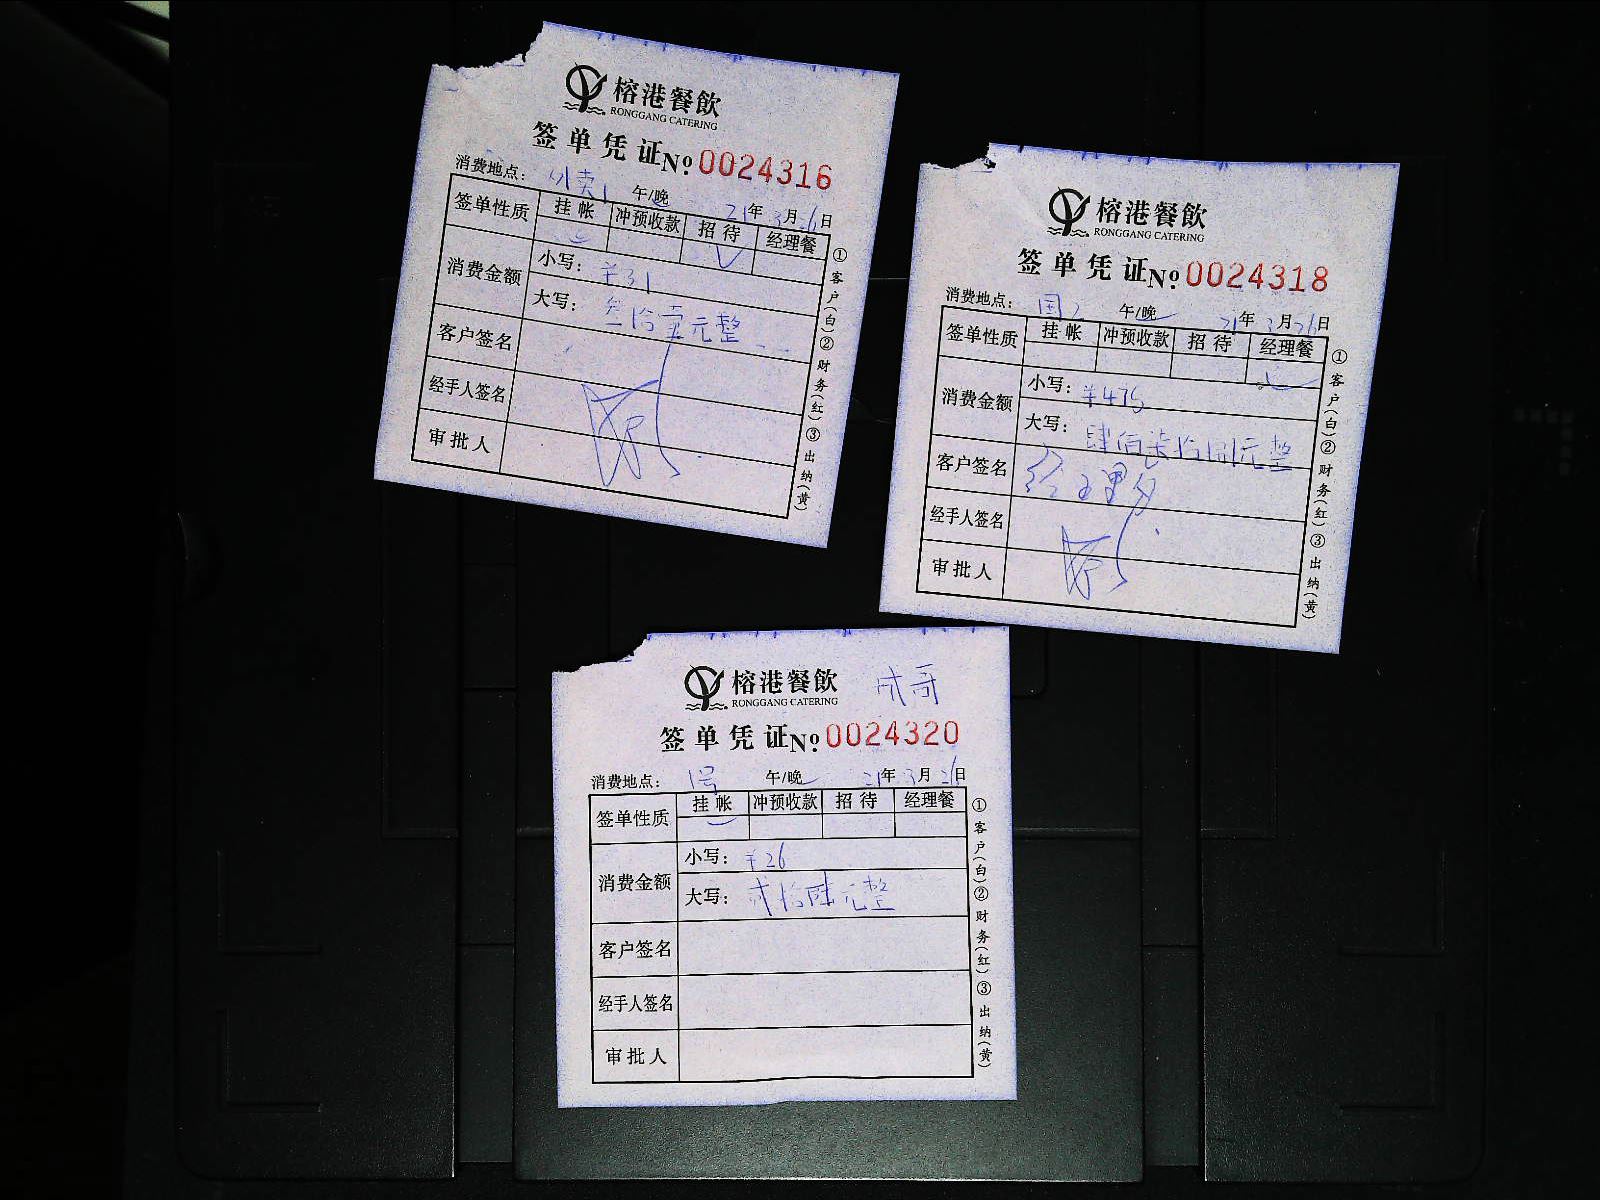 榕港餐飲
RONGGANG CATERING
签单凭证 №0024316
消费地点：外卖1 午/晚 21年3月26日
签单性质 挂帐 冲预收款 招待 经理餐
消费金额 小写：¥31
大写：叁拾壹元整
客户签名
经手人签名
审批人
①客户(白)②财务(红)③出纳(黄)
榕港餐飲
RONGGANG CATERING
签单凭证 №0024318
消费地点：国2 午/晚 21年3月26日
签单性质 挂帐 冲预收款 招待 经理餐
消费金额 小写：¥475
大写：肆佰柒拾 元整
客户签名
经手人签名
审批人
①客户(白)②财务(红)③出纳(黄)
榕港餐飲 成哥
RONGGANG CATERING
签单凭证 №0024320
消费地点：1号 午/晚 21年3月26日
签单性质 挂帐 冲预收款 招待 经理餐
消费金额 小写：¥26
大写：贰拾陆元整
客户签名
经手人签名
审批人
①客户(白)②财务(红)③出纳(黄)